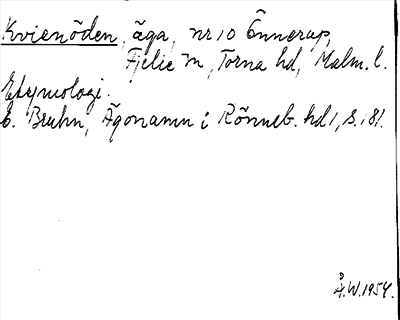 Kvienöden, äga, nr 10 Önnerup,
Fjelie sn, Torna hd, Malm. l.
Etymologi.
E. Bruhn, Ägonamn i Rönneb. hd 1, s. 181.
Å.W. 1954.